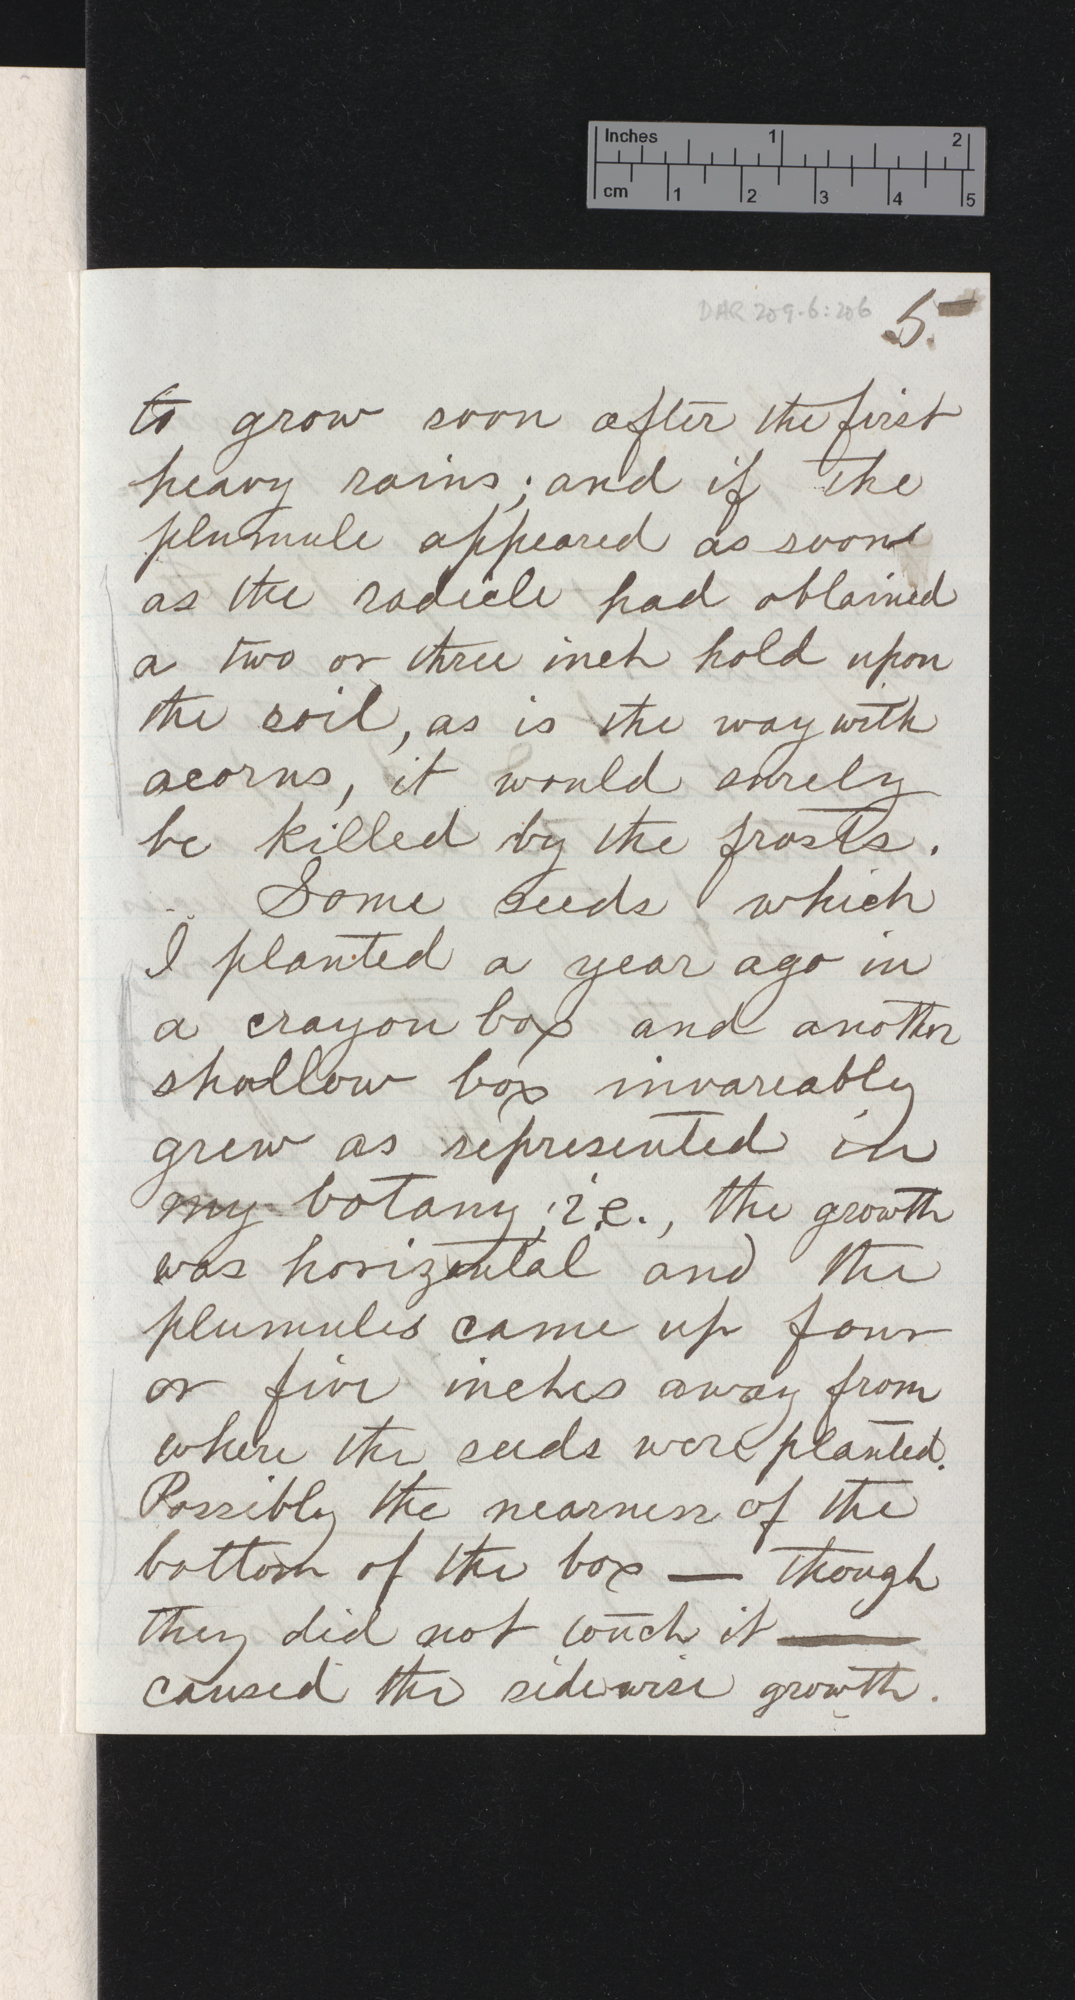 Inches 1 2
cm 1 2 3 4 5
DAR 209.6:206
5.
to grow soon after the first
heavy rains; and if the
plumule appeared as soon
as the radicle had obtained
a two or three inch hold upon
the soil, as is the way with
acorns, it would surely
be killed by the frosts.
Some seeds which
I planted a year ago in
a crayon box and another
shallow box invareably
grew as represented in
my botany, i.e., the growth
was horizontal and the
plumules came up four
or five inches away from
where the seeds were planted.
Possibly the nearness of the
bottom of the box — though
they did not touch it —
caused the sidewise growth.